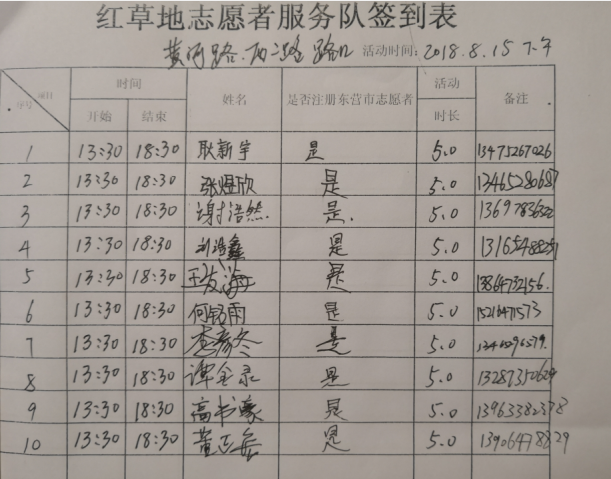 红草地志愿者服务队签到表
黄河路·西二路 路口 活动时间：2018.8.15 下午
序号 项目 时间 姓名 是否注册东营市志愿者 活动 备注
开始 结束 时长
1 13:30 18:30 耿新宇 是 5.0 13475267026
2 13:30 18:30 张煜欣 是 5.0 13465280687
3 13:30 18:30 谢浩然 是 5.0
4 13:30 18:30 是 5.0
5 13:30 18:30 王友海 是 5.0
6 13:30 18:30 是 5.0
7 13:30 18:30 李彦冬 是 5.0
8 13:30 18:30 谭全录 是 5.0
9 13:30 18:30 高书豪 是 5.0
10 13:30 18:30 是 5.0